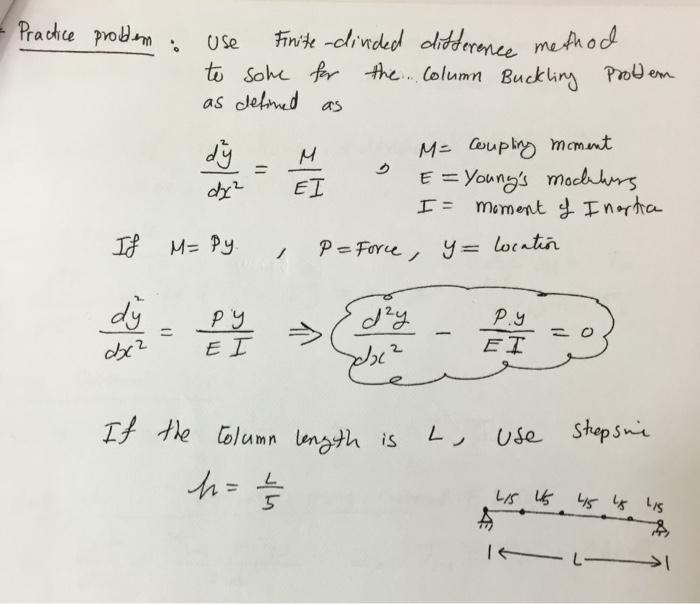 Practice problem : Use Finite-divided difference method
to solve for the.. Column Buckling Problem
as defined as
d²y/dx² = M/EI , M = Coupling moment
E = Young's modulus
I = moment of Inertia
If M = Py , P = Force, y = location
d²y/dx² = Py/EI ⇒ d²y/dx² - P.y/EI = 0
If the Column length is L, Use stepsize
h = L/5
L/5 L/5 L/5 L/5 L/5
L